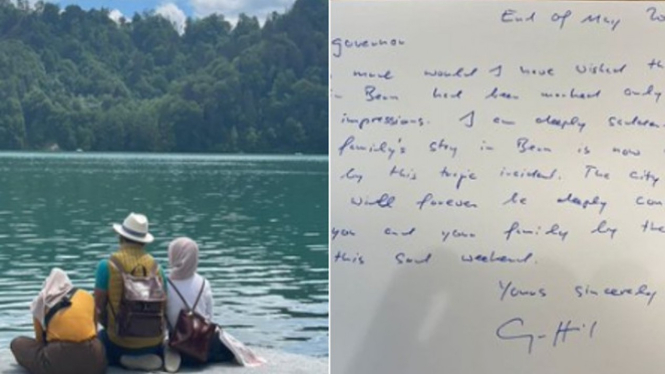 End of May 20
governor
much would I have wished th
in Bern had been marked only
impressions. I am deeply sadden
family's stay in Bern is now
by this tragic incident. The city
will forever be deeply con
you and your family by the
this sad weekend.
Yours sincerely